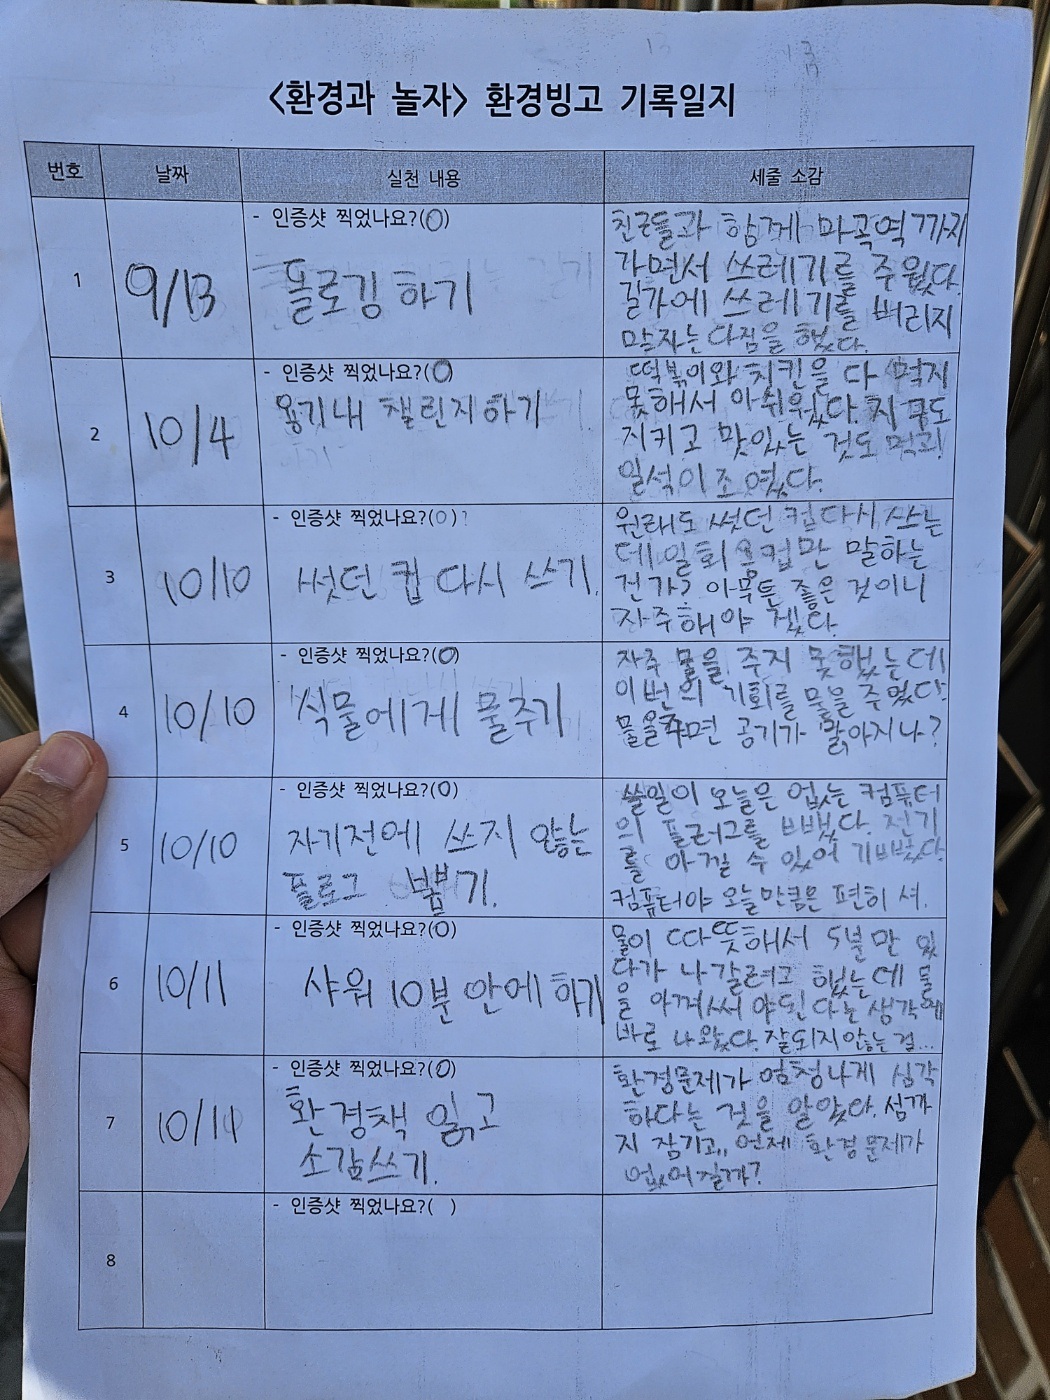 <환경과 놀자> 환경빙고 기록일지
번호 날짜 실천 내용 세줄 소감
1
9/13
- 인증샷 찍었나요?(O)
플로깅 하기
친구들과 함께 마곡역까지
가면서 쓰레기를 주웠다.
길가에 쓰레기를 버리지
말자는 다짐을 했다.
2
10/4
- 인증샷 찍었나요?(O)
용기내 챌린지하기
떡볶이와 치킨을 다 먹지
못해서 아쉬웠다. 지구도
지키고 맛있는 것도 먹고
일석이조였다.
3
10/10
- 인증샷 찍었나요?(O)?
썻던 컵 다시 쓰기.
원래도 썼던 컵 다시 쓰는
데 일회용컵만 말하는
건가? 아무튼 좋은 것이니
자주해야 겠다.
4
10/10
- 인증샷 찍었나요?(O)
식물에게 물주기
자주 물을 주지 못했는데
이번의 기회를 물을 주었다
물을주면 공기가 맑아지나?
5
10/10
- 인증샷 찍었나요?(O)
자기전에 쓰지 않는
플로그 뽑기.
쓸일이 오늘은 없는 컴퓨터
의 플러그를 뺐다. 전기
를 아낄 수 있어 기뻤다.
컴퓨터야 오늘만큼은 편히 셔.
6
10/11
- 인증샷 찍었나요?(O)
샤워 10분 안에 하기
물이 따뜻해서 5분만 있
다가 나갈려고 했는데 물
을 아껴써야된다는 생각에
바로 나왔다. 잘되지않는걸...
7
10/14
- 인증샷 찍었나요?(O)
환경책 읽고
소감쓰기.
환경문제가 엄청나게 심각
하다는 것을 알았다. 섬까
지 잠기고,, 언제 환경문제가
없어질까?
8
- 인증샷 찍었나요?( )